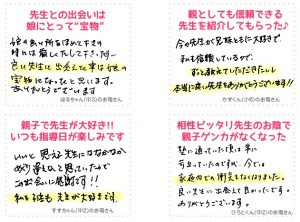 先生との出会いは
娘にとって“宝物”
娘の良い所をほめて下さり
良い先生に出会えた事は娘の
宝物になったと思います。
ありがとうございます
はるちゃん(中③)のお母さん
親としても信頼できる
先生を紹介してもらった♪
今の先生が兄妹ともに大好きで
私も信頼しているので、
ずっと教えていただきたい
本当に良い先生をありがとうございます!!
かずくん(小⑥)のお母さん
親子で先生が大好き!!
いつも指導日が楽しみです
いいと思える先生にはなかなか
この出会いに感謝です!!
私も子供も先生が大好きです。
すずちゃん(中②)のお母さん
相性ピッタリ先生のお陰で
親子ゲンカがなくなった
塾に通っていた頃は常に
家庭の中で衝突もなくなりました。
良い先生に出会えて良かったです。
ありがとうございます。
ひろとくん(中②)のお母さん